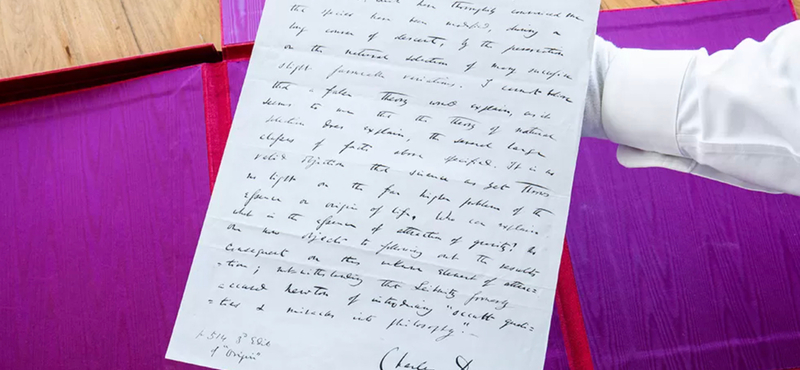 have thoroughly convinced me
the species have been modified, during a
long course of descent, by the preservation
or the natural selection of many successive
slight favourable variations. I cannot believe
that a false theory would explain, as it
seems to me that the theory of natural
selection does explain, the several large
classes of facts above specified. It is no
valid objection that science as yet throws
no light on the far higher problem of the
essence or origin of life. Who can explain
what is the essence of attraction of gravity? No
one now objects to following out the results
consequent on this unknown element of attrac-
-tion; notwithstanding that Leibnitz formerly
accused Newton of introducing "occult quali-
-ties & miracles into philosophy."—
p 514 3d Edit
of "Origin"
Charles D